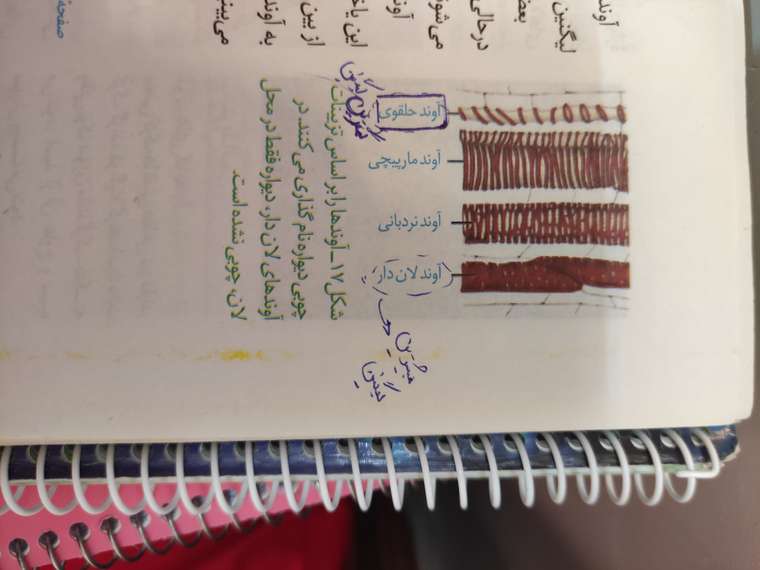 آوند
لیگنین
بعض
درحالی
می‌شون
آوند
این یاخ
از بین
به آوند
می‌بین
آوند حلقوی
آوند مارپیچی
آوند نردبانی
آوند لان دار
کمترین لیگنین
بیشترین لیگنین
شکل ۱۷ـ آوندها را بر اساس تزیینات
چوبی دیواره نام گذاری می کنند. در
آوندهای لان دار، دیواره فقط در محل
لان، چوبی نشده است.
صفحهٔ